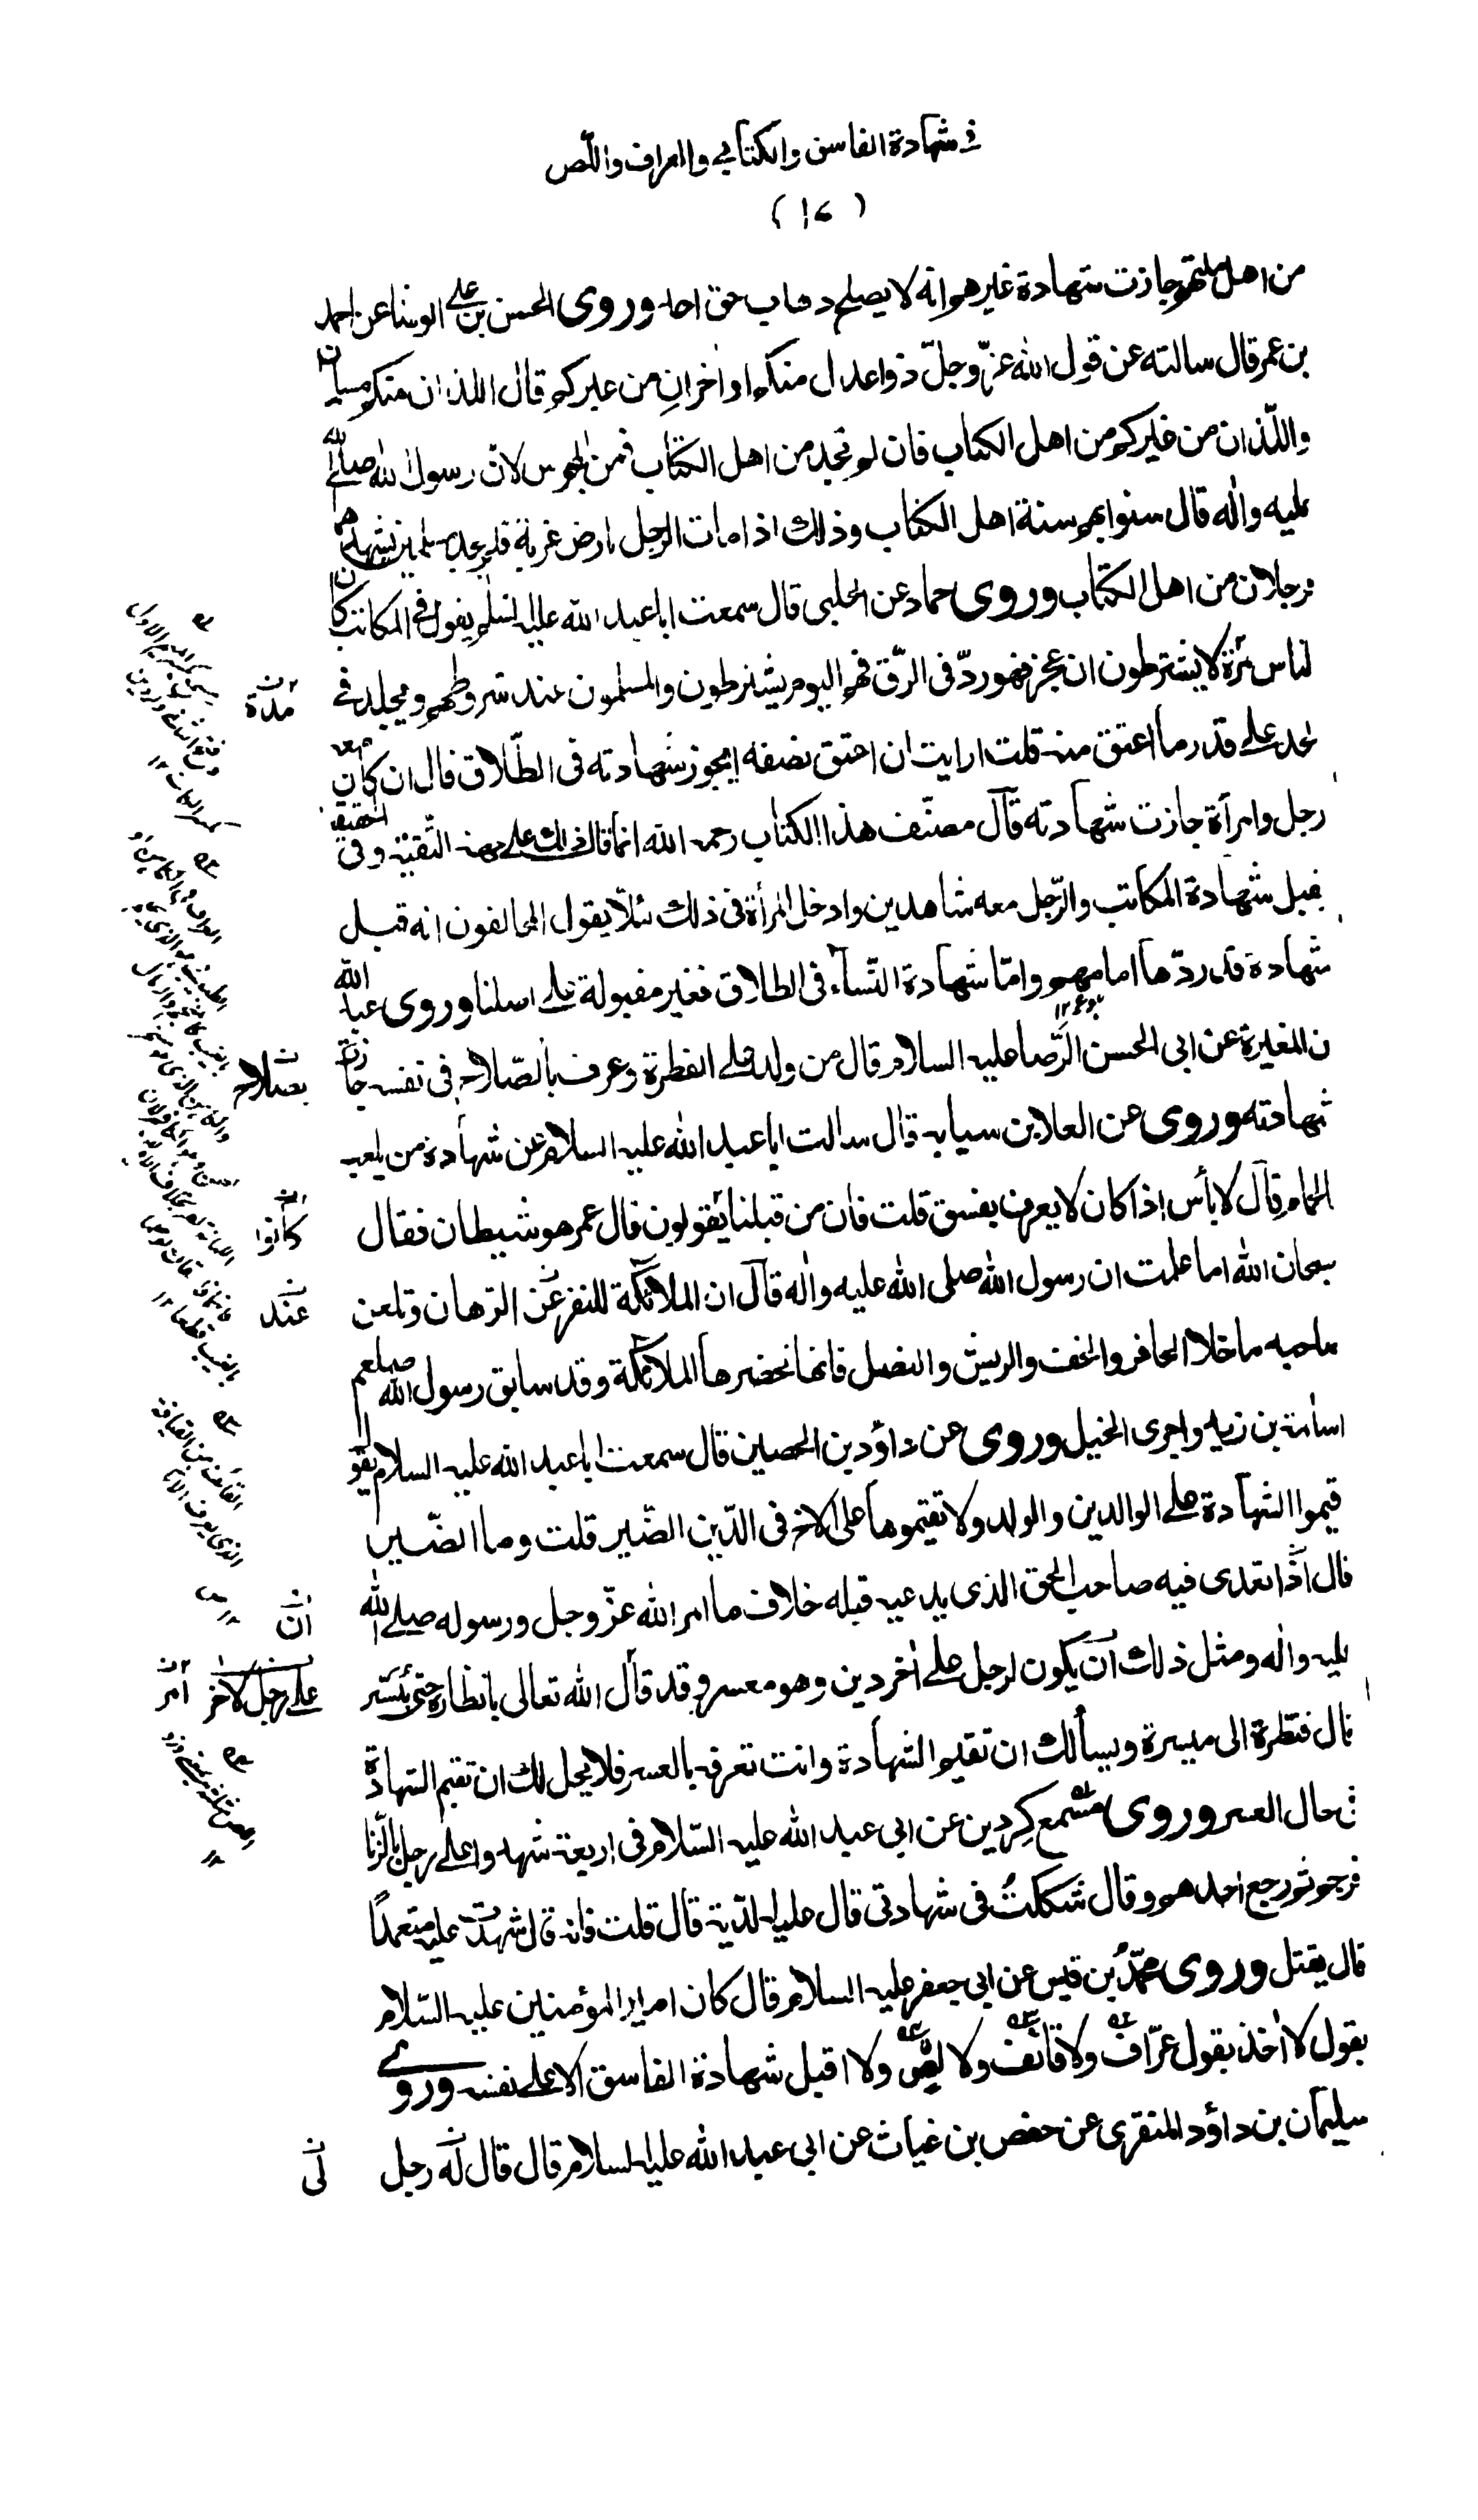 في شهادة الفاسق والكتابي والعراف واللص
(١٧)
من اهل ملتهم جازت شهادة غيرهم انه لا يصلح ذهاب حق احد وروى الحسن بن علي الوشا عن احمد
بن عمر قال سالته عن قول الله عزّ وجلّ ذوا عدل منكم او اخران من غيركم قال اللذان منكم مسلمان
واللذان من غيركم من اهل الكتاب فان لم تجد من اهل الكتاب فمن المجوس لان رسول الله صلى الله
عليه واله قال سنوا بهم سنة اهل الكتاب وذلك اذا مات الرجل بارض غربة فلم يجد مسلمين يشهدهما
فرجلان من اهل الكتاب وروى حماد عن الحلبي قال سمعت ابا عبد الله عليه السلام يقول في المكاتب كان
لناس مرّة لا يشترطون ان عجز فهو ردّ فى الرّق فهم اليوم يشترطون والمسلمون عند شروطهم ويجلد في
لحد على قدر ما اعتق منه قلت ارايت ان اعتق نصفه ايجوز شهادته فى الطّلاق قال ان كان معه
رجل وامرأة جازت شهادته قال مصنّف هذا الكتاب رحمه الله انما قال ذلك على جهة التقية وفى الحقيقة
يقبل شهادة المكاتب والرّجل معه شاهدين وادخل المرأة فى ذلك لئلّا يقول المخالفون انه قبل
شهادة قد ردّها امامهم وامّا شهادة النّساء فى الطلاق فغير مقبولة على اصلنا وروى عبد الله
بن المغيرة عن ابى الحسن الرّضا عليه السلام قال من ولد على الفطرة وعرف بالصّلاح فى نفسه جازت
شهادته وروى عن العلا بن سيابه قال سالت ابا عبد الله عليه السلام عن شهادة من يلعب
الحمام قال لا بأس اذا كان لا يعرف بفسق قلت فان من قبلنا يقولون قال عمر هو شيطان فقال
سبحان الله اما علمت ان رسول الله صلى الله عليه واله قال ان الملائكة لتنفر عن الرّهان وتلعن
صاحبه ما خلا الحافر والخف والريش والنصل فانها تحضرها الملائكة وقد سابق رسول الله صلعم
اسامة بن زيد واجرى الخيل وروى عن داؤد بن الحصين قال سمعت ابا عبد الله عليه السلام يقول
قيموا الشهادة على الوالدين والولد ولا تقيموها على الاخ فى الدّين الضّير قلت وما الضّير
قال اذا تعدى فيه صاحب الحق الذى يدعيه قبله خلاف ما امر الله عزّ وجل ورسوله صلى الله
عليه واله ومثل ذلك ان يكون لرجل على اخر دين وهو معسر وقد قال الله تعالى بانظاره حتى ييسّر
قال فنظرة الى ميسرة ويسألك ان تقيم الشهادة وانت تعرفه بالعسر فلا يحل لك ان تقيم الشهادة
فى حال العسر وروى مسمع كردين عن ابى عبد الله عليه السّلام فى اربعة شهدوا على رجل بالزّنا
فرجم ثم رجع احدهم وقال شككتُ فى شهادتى قال عليه الدّية قال قلت فانه قال شهدت عليه متعمدًا
قال يقتل وروى محمّد بن قيس عن ابى جعفر عليه السلام قال كان امير المؤمنين عليه السّلام
يقول لا اخذ بقول عرّاف ولا قائف ولا لصّ ولا اقبل شهادة الفاسق الا على نفسه وروى
سليمان بن داؤد المنقرى عن حفص بن غياث عن ابى عبد الله عليه السلام قال قال له رجل
مدّة
بصلاح
كانوا
عند
ان
على رجل لاخر
امر
لى